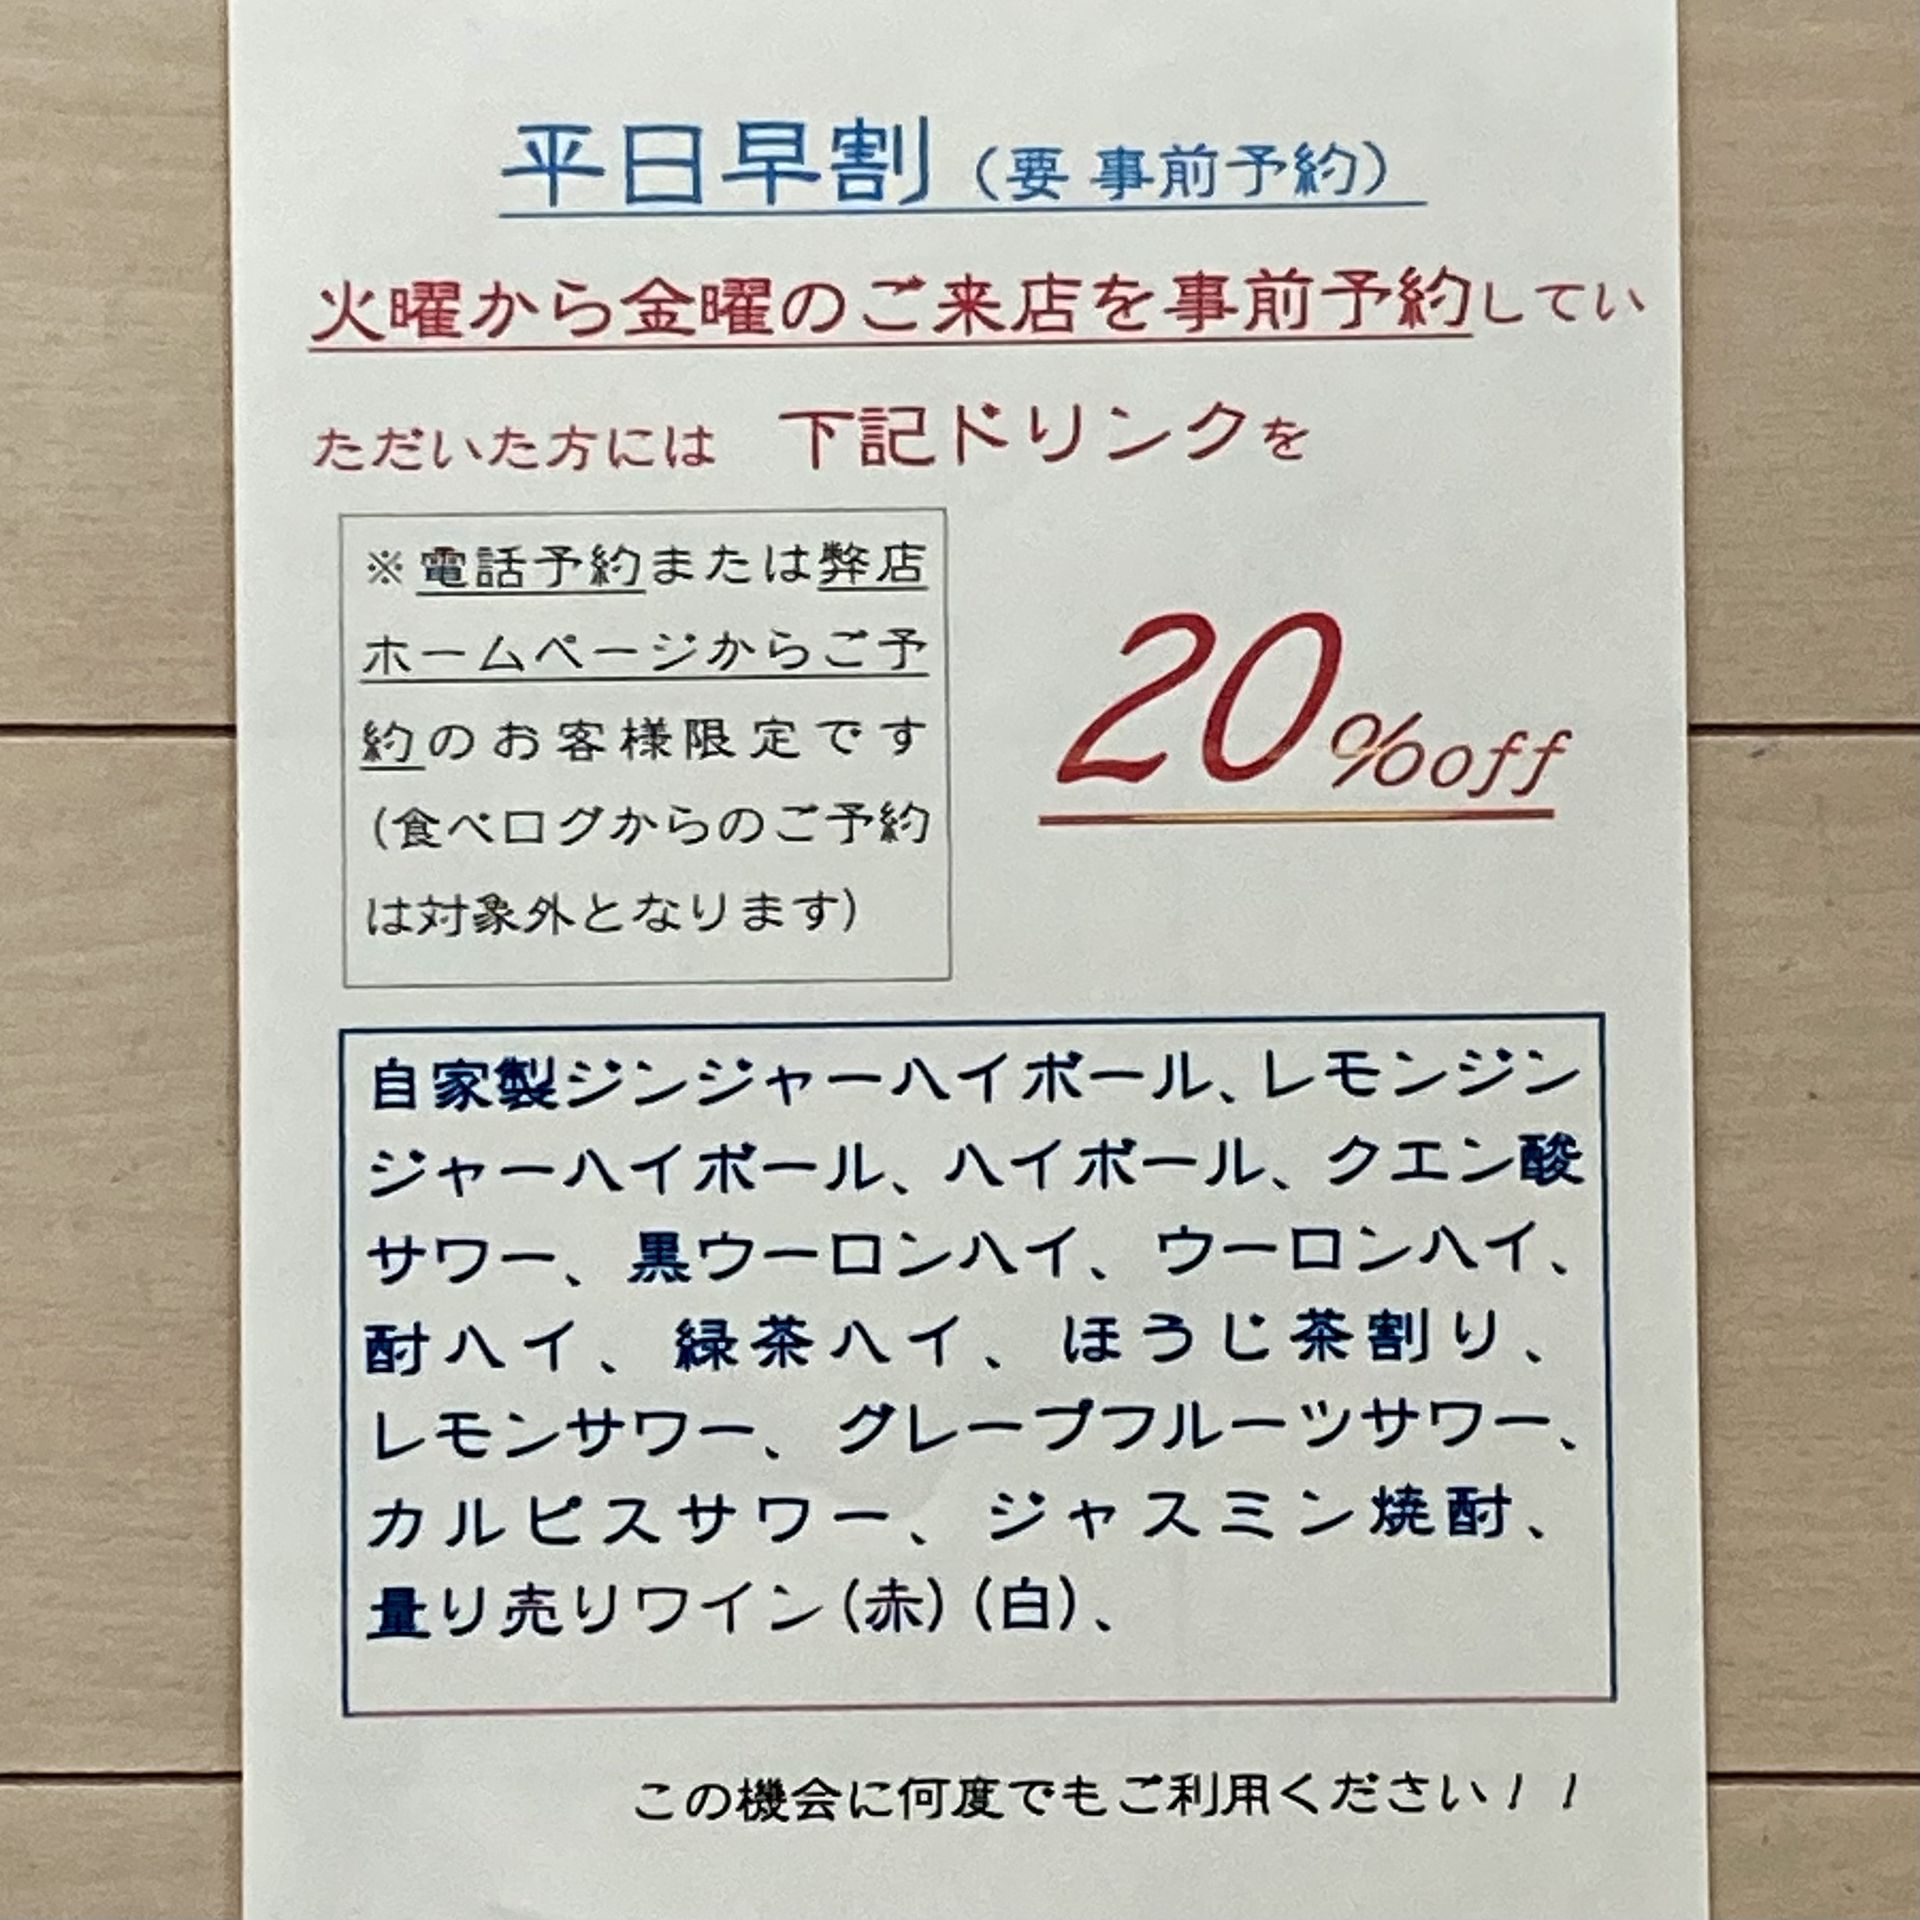 平日早割（要 事前予約）
火曜から金曜のご来店を事前予約してい
ただいた方には 下記ドリンクを
※電話予約または弊店
ホームページからご予
約のお客様限定です
(食べログからのご予約
は対象外となります)
20%off
自家製ジンジャーハイボール、レモンジン
ジャーハイボール、ハイボール、クエン酸
サワー、黒ウーロンハイ、ウーロンハイ、
酎ハイ、緑茶ハイ、ほうじ茶割り、
レモンサワー、グレープフルーツサワー、
カルピスサワー、ジャスミン焼酎、
量り売りワイン(赤)(白)、
この機会に何度でもご利用ください！！